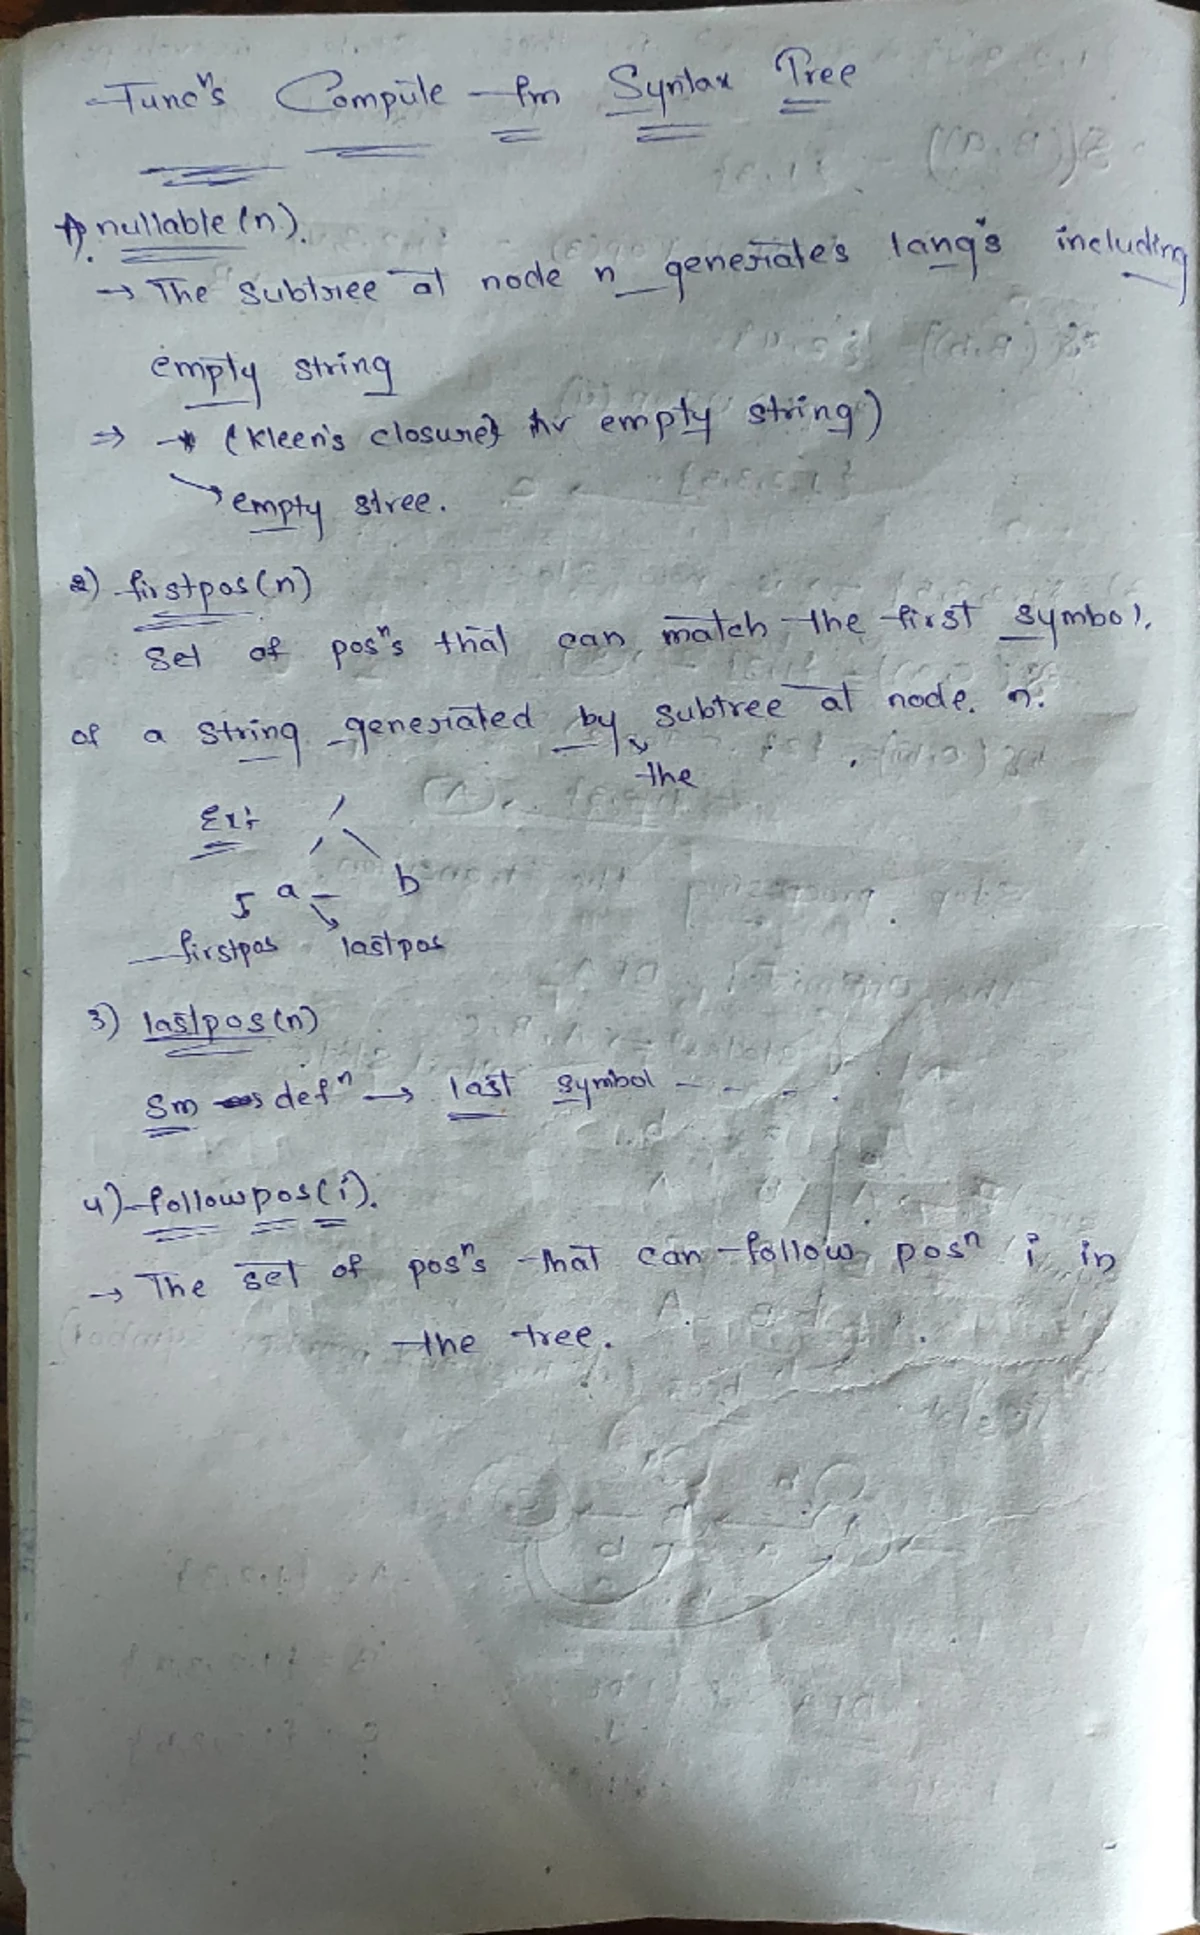 Func^n's Compute fm Syntax Tree
1). nullable (n).
→ The subtree at node n generates lang's including
empty string
⇒ → * (Kleen's closure) for empty string)
↘ empty stree.
2) firstpos(n)
Set of pos^n's that can match the first symbol.
of a string generated by subtree at node. n.
the
Ex:
a b
firstpos lastpos
3) lastpos(n)
Sm def^n → last symbol - - - - .
4) followpos(i).
→ The set of pos^n's that can follow pos^n i in
the tree.